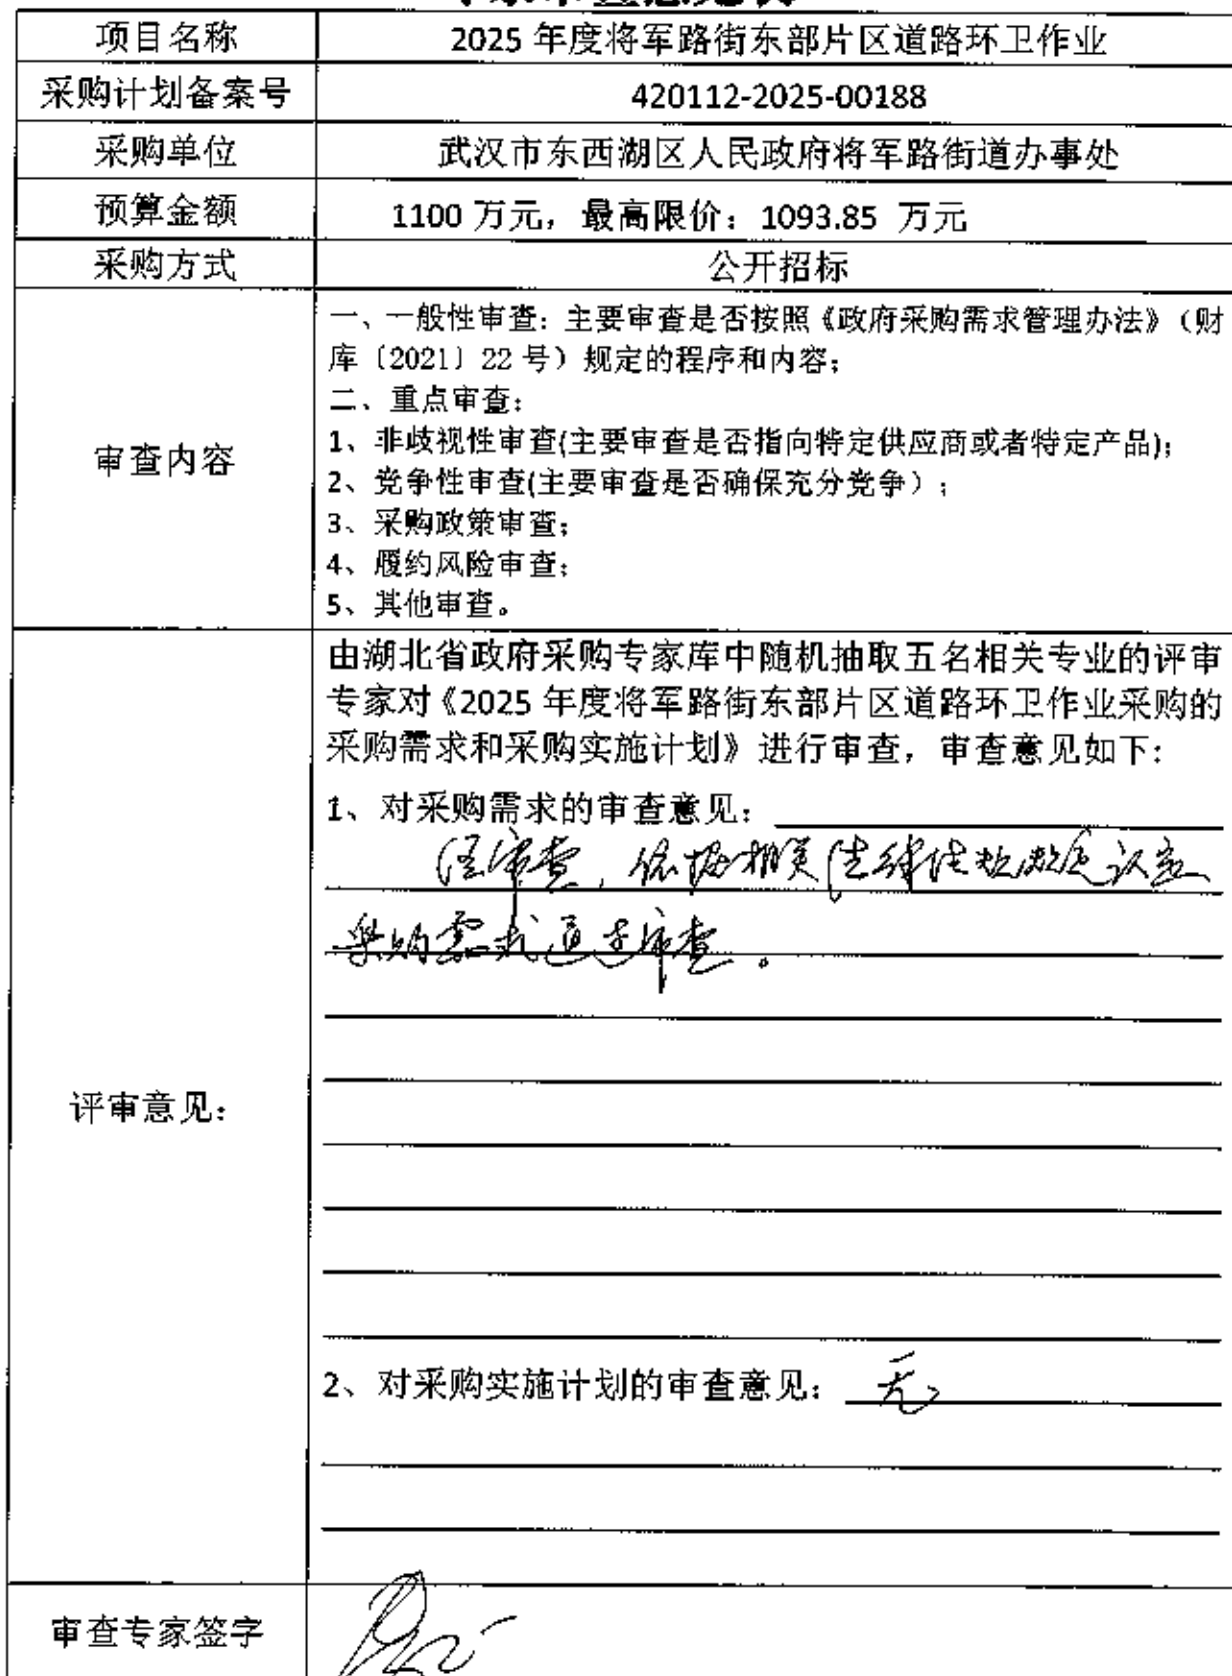 项目名称 2025 年度将军路街东部片区道路环卫作业
采购计划备案号 420112-2025-00188
采购单位 武汉市东西湖区人民政府将军路街道办事处
预算金额 1100 万元，最高限价：1093.85 万元
采购方式 公开招标
审查内容
一、一般性审查：主要审查是否按照《政府采购需求管理办法》（财
库〔2021〕22 号）规定的程序和内容；
二、重点审查：
1、非歧视性审查(主要审查是否指向特定供应商或者特定产品);
2、竞争性审查(主要审查是否确保充分竞争）;
3、采购政策审查;
4、履约风险审查;
5、其他审查。
评审意见：
由湖北省政府采购专家库中随机抽取五名相关专业的评审
专家对《2025 年度将军路街东部片区道路环卫作业采购的
采购需求和采购实施计划》进行审查，审查意见如下:
1、对采购需求的审查意见：
经审查，依据相关法律法规规定认定
采购需求通过审查。
2、对采购实施计划的审查意见：无
审查专家签字